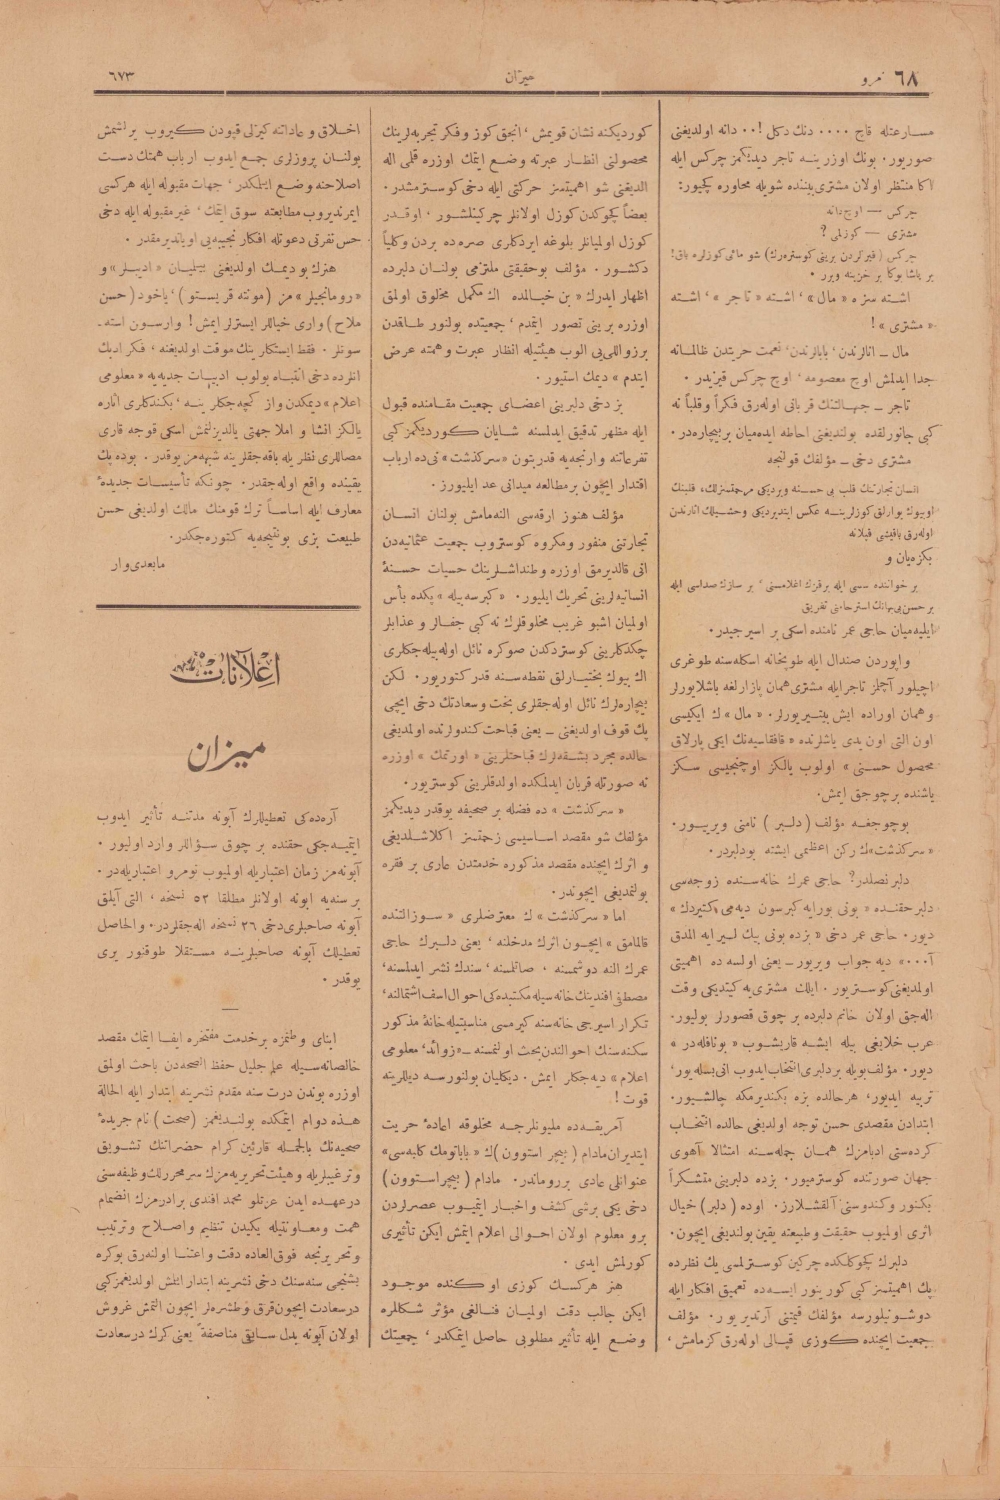 ٦٨ نمرو
میزان
٦٧٣
مسارعتله قاچ ۰۰۰۰ دنك دكل !۰۰ دانه اولدیغنی
صوریور. بونك اوزرینه تاجر دیدیكمز چركس ایله
اكا منتظر اولان مشتری بیننده شویله محاوره كچیور:
چركس — اوچ دانه
مشتری — كوزلمی ؟
چركس (قیزكردن برینی كوستره‌رك) شو مائی كوزلره باق!
بر پاشا بوكا بر خزینه ویرر .
اشته سزه « مال » ، اشته « تاجر » ، اشته
« مشتری » !
مال ــ انالرندن ، بابالرندن ، نعمت حریتدن ظالمانه
جدا ایدلمش اوچ معصومه ، اوچ چركس قیزیدر .
تاجر ــ جهالتنك قربانی اوله‌رق فكراً وقلباً نه
كبی جانورلقده بولندیغنی احاطه ایده‌میان بر بیچاره‌در .
مشتری دخی ــ مؤلفك قولنجه
انسان تجارتنك قلب بی حسنه ویردیكی مرحمتسزلك، قلبنك
اویوك بوارلق كوزلرینه عكس ایتدیردیكی وحشیلك اثارندن
اوله‌رق باقیشی قبلانه
بكزه‌یان و
بر خواننده سسی ایله بر قیزك اغلامسنی ، بر سازك صداسی ایله
بر حسن بی‌بهانك استرحامنی تفریق
ایلیه‌میان حاجی عمر نامنده اسكی بر اسیرجیدر .
واپوردن صندال ایله طوپخانه اسكله‌سنه طوغری
اچیلور آچلمز تاجر ایله مشتری همان پازارلغه باشلایورلر
و همان اوراده ایش بیتیریورلر. « مال » ك ایكیسی
اون التی اون یدی یاشلرنده « قافقاسیه‌نك ایكی پارلاق
محصول حسنی » اولوب یالكز اوچنجیسی سكز
یاشنده بر چوجق ایمش .
بوچوجغه مؤلف ( دلبر ) نامنی ویریور .
« سركذشت » ك ركن اعظمی ایشته بودلبردر .
دلبر نصلدر؟ حاجی عمرك خانه‌سنده زوجه‌سی
دلبر حقنده « بونی بورایه كبرسون دیه‌می كتیردك »
دیور. حاجی عمر دخی « بزده بونی بیك لیرایه المدق
آ۰۰۰ » دیه جواب ویریور ــ یعنی اولسه ده اهمیتی
اولمدیغنی كوستریور . ایلك مشتری‌یه كیتدیكی وقت
اله‌جق اولان خانم دلبرده بر چوق قصورلر بولیور.
عرب خلایغی بیله ایشه قاریشوب « بونافله‌در »
دیور. مؤلف بویله بر دلبری انتخاب ایدوب انی بسله‌یور،
تربیه ایدیور، هر حالده بزه بكندیرمكه چالشیور.
ابتدادن مقصدی حسن توجه اولدیغی حالده انتخاب
كرده‌سنی ادبامزك همان جمله‌سنه امتثالا آهوی
جهان صورتنده كوسترمیور. بزده دلبرینی متفكراً
بكنور وكندوسنی آلقشلارز. اوده ( دلبر ) خیال
اثری اولمیوب حقیقت وطبیعته یقین بولندیغی ایچون.
دلبرك كوچوكلكده چركین كوسترلمسی یك نظرده
پك اهمیتسز كبی كورینور ایسه‌ده تعمیق افكار ایله
دوشونیلورسه مؤلفك قیمتنی آرتدیریور. مؤلف
جمعیت ایچنده كوزی قپالی اوله‌رق كزمامش ،
كوردیكنه نشان قویمش ، انجق كوز وفكر تجربه‌لرینك
محصولنی انظار عبرته وضع ایتمك اوزره قلمی اله
الدیغنی شو اهمیتسز حركتی ایله دخی كوسترمشدر .
بعضاً كوچوكدن كوزل اولانلر چركینلشور ، اوقدر
كوزل اولمیانلر بلوغه ایردكلری صره‌ده بردن وكلیاً
دكشور . مؤلف بوحقیقتی ملتزمی بولنان دلبرده
اظهار ایدرك « بن خیالمده اك مكمل مخلوق اولمق
اوزره برینی تصور ایتمدم ، جمعیتده بولنور طاقدن
بر زواللی‌یی الوب هیئتیله انظار عبرت و همته عرض
ایتدم » دیمك استیور .
بز دخی دلبرینی اعضای جمعیت مقامنده قبول
ایله مظهر تدقیق ایدلمسنه شایان كوردیكمز كبی
تفرعاتنه وارنجه‌یه قدر بتون « سركذشت » ی ده ارباب
اقتدار ایچون بر مطالعه میدانی عد ایلیورز .
مؤلف هنوز ارقه‌سی النه‌مامش بولنان انسان
تجارتنی منفور ومكروه كوستروب جمعیت عثمانیه‌دن
انی قالدیرمق اوزره وطنداشلرینك حسیات حسنهٔ
انسانیه‌لرینی تحریك ایلیور . « كبرسه بیله » پكده بأس
اولمیان اشبو غریب مخلوقلرك نه كبی جفالر و عذابلر
چكدكلرینی كوستردكدن صوكره نائل اوله‌بیله‌جكلری
اك بیوك بختیارلق نقطه‌سنه قدر كتوریور . لكن
بیچاره‌لرك نائل اوله‌جقلری بخت وسعادتك دخی ایچی
پك قوف اولدیغنی ــ یعنی قباحت كندولرنده اولمدیغی
حالده مجرد بشقه‌لرك قباحتلرینی « اورتمك » اوزره
نه صورتله قربان ایدلمكده اولدقلرینی كوستریور .
« سركذشت » ده فضله بر صحیفه یوقدر دیدیكمز
مؤلفك شو مقصد اساسیسی زحمتسز اكلاشلدیغی
و اثرك ایچنده مقصد مذكوره خدمتدن عاری بر فقره
بولنمدیغی ایچوندر .
اما « سركذشت » ك معترضلری « سوز التنده
قالمامق » ایچون اثرك مدخلنه ، یعنی دلبرك حاجی
عمرك النه دوشمسنه ، صاتلمسنه ، سندك نشر ایدلمسنه،
مصطفی افندینك خانه‌سیله مكتبده‌كی احوال اسف اشتمالنه،
تكرار اسیرجی خانه‌سنه كیرمسی مناسبتیله خانهٔ مذكور
سكنه‌سنك احوالندن بحث اولنمسنه ــ « زوائد، معلومی
اعلام » دیه‌جكلر ایمش . دیكلیان بولنورسه دیللرینه
قوت !
آمریقه‌ده ملیونلرجه مخلوقه اعادهٔ حریت
ایتدیران مادام ( بیچر استوون ) ك « باباتومك كلبه‌سی »
عنوانلی عادی بر روماندر . مادام ( بیچر استوون )
دخی یكی برشی كشف واخبار ایتمیوب عصرلردن
برو معلوم اولان احوالی اعلام ایتمش ایكن تأثیری
كورلمش ایدی .
هنر هركسك كوزی اوكنده موجود
ایكن جالب دقت اولمیان فنالغی مؤثر شكللره
وضع ایله تأثیر مطلوبی حاصل ایتمكدر ، جمعیتك
اخلاق و عاداتنه كیزلی قپودن كیروب یرلشمش
بولنان پروزلری جمع ایدوب ارباب همتك دست
اصلاحنه وضع ایتمكدر ، جهات مقبوله ایله هركسی
ایمرندیروب مطابعته سوق ایتمك ، غیر مقبوله ایله دخی
حس نفرتی دعوتله افكار نجیبه‌یی اویاندیرمقدر .
هنرك بو دیمك اولدیغنی بیلمیان « ادیبلر » و
« رومانجیلر » مز ( مونته قریستو ) ، یاخود ( حسن
ملاح ) واری خیاللر ایسترلر ایمش ! وارسون استه‌ـ
سونلر . فقط ایستكلرینك موقت اولدیغنه ، فكر ادبك
انلرده دخی انتباه بولوب ادبیات جدیه‌یه « معلومی
اعلام » دیمكدن واز كچه‌جكلرینه ، بكندكلری اثاره
یالكز انشا و املا جهتی یالدیزلنمش اسكی قوجه قاری
مصاللری نظریله باقه‌جقلرینه شبهه‌مز یوقدر . بوده پك
یقینده واقع اوله‌جقدر . چونكه تأسیسات جدیدهٔ
معارف ایله اساساً ترك قومنك مالك اولدیغی حسن
طبیعت بزی بو نتیجه‌یه كتوره‌جكدر .
مابعدی وار
اعلانات
میزان
آره‌ده‌كی تعطیللرك آبونه مدتنه تأثیر ایدوب
ایتمیه‌جكی حقنده بر چوق سؤاللر وارد اولیور .
آبونه‌مز زمان اعتباریله اولمیوب نومرو اعتباریله‌در .
بر سنه‌یه ابونه اولانلر مطلقا ٥٢ نسخه ، التی آیلق
آبونه صاحبلری دخی ٢٦ نسخه اله‌جقلردر . والحاصل
تعطیلك آبونه صاحبلرینه مستقلا طوقنور یری
یوقدر .
ابنای وطنمزه بر خدمت مفتخره ایفا ایتمك مقصد
خالصانه‌سیله علم جلیل حفظ الصحه‌دن باحث اولمق
اوزره بوندن درت سنه مقدم نشرینه ابتدار ایله الحالة
هذه دوام ایتمكده بولندیغمز ( صحت ) نام جریدهٔ
صحیه‌نك بالجمله قارئین كرام حضراتنك تشویق
وترغیبلریله و هیئت تحریریه‌مزك سر محررلك وظیفه‌سنی
درعهده ایدن عزتلو محمد افندی برادرمزك انضمام
همت ومعاونتیله یكیدن تنظیم واصلاح وترتیب
وتحریرنجه فوق‌العاده دقت واعتنا اولنه‌رق بوكره
بشنجی سنه‌سنك دخی نشرینه ابتدار ائلش اولدیغمز كبی
درسعادت ایچون قرق وطشره‌لر ایچون التمش غروش
اولان آبونه بدل سابقی مناصفةً یعنی كرك درسعادت